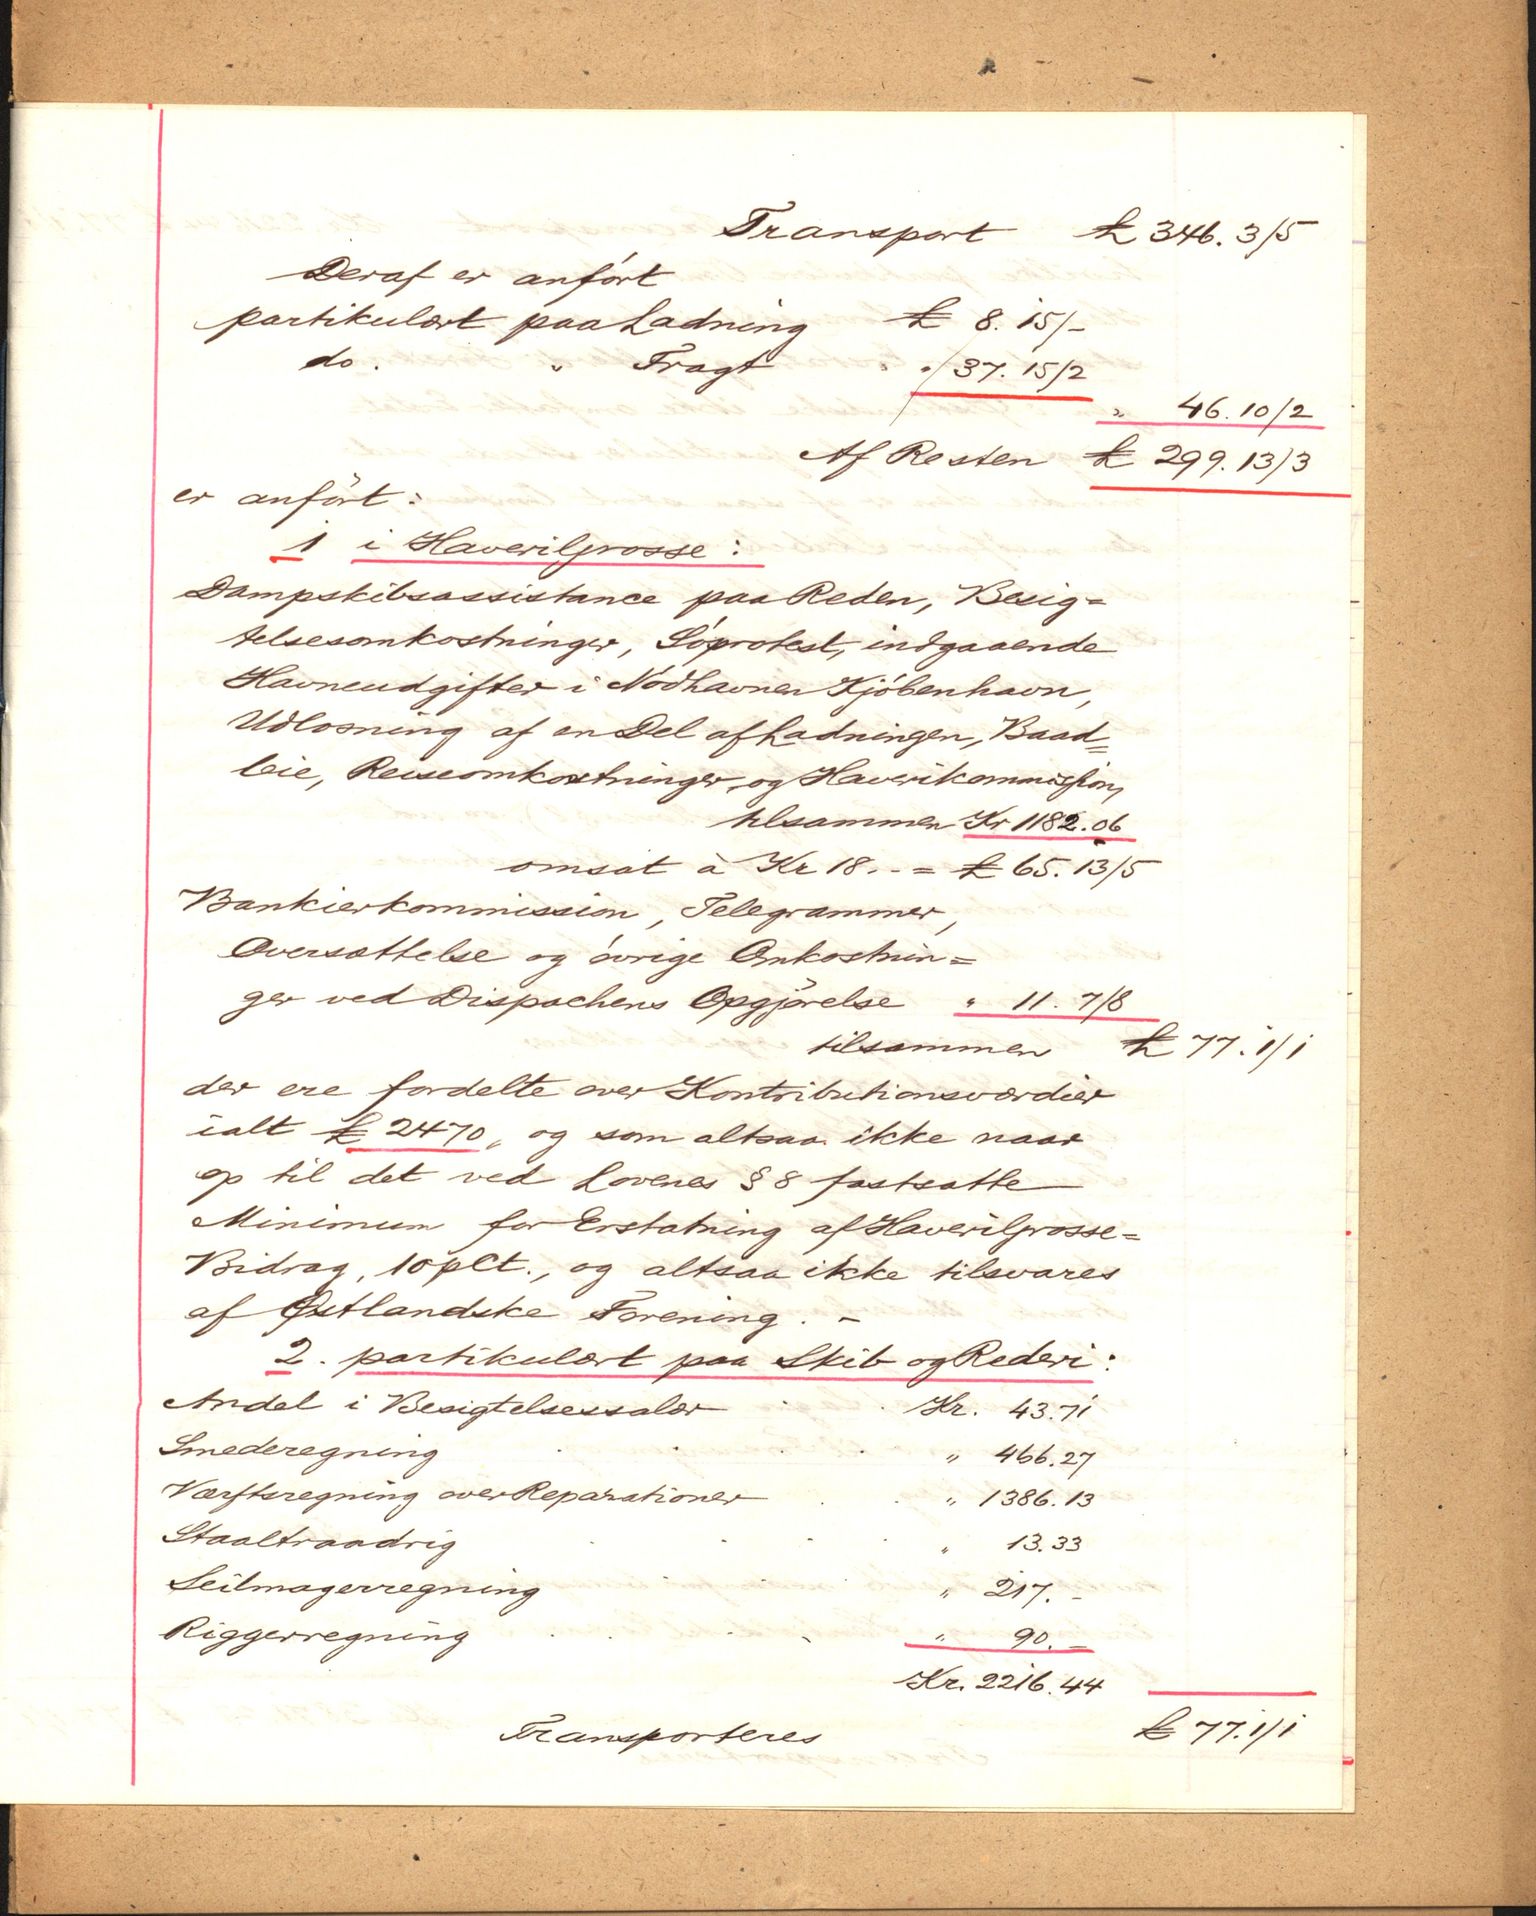 Transport £ 346. 3/5
Deraf er anført
partikulært paa Ladning £ 8. 15/-
do. " Fragt " 37. 15/2
" 46. 10/2
Af Resten £ 299. 13/3
er anført:
1 i Haverilgrosse:
Dampskibsassistance paa Reden, Besig=
telsesomkostninger, Søprotest, indgaaende
Havneudgifter i Nødhavnen Kjøbenhavn,
Udlosning af en Del af Ladningen, Baad=
leie, Reiseomkostninger, og Haverikommission,
tilsammen Kr 1182.06
omsat à Kr 18.- = £ 65. 13/5
Bankierkommission, Telegrammer,
Oversættelse og øvrige Omkostnin=
ger ved Dispachens Opgjørelse " 11. 7/8
tilsammen £ 77. 1/1
der ere fordelte over Kontributionsværdier
ialt £ 2470, og som altsaa ikke naar
op til det ved Lovenes § 8 fastsatte
Minimum for Erstatning af Haverilgrosse=
Bidrag, 10 pCt., og altsaa ikke tilsvares
af Østlandske Forening. -
2. partikulært paa Skib og Rederi:
Andel i Besigtelsessalær Kr. 43.71
Smederegning " 466.27
Værftsregning over Reparationer " 1386.13
Staaltraadrig " 13.33
Seilmagerregning " 217. -
Riggerregning " 90. -
Kr. 2216.44
Transporteres £ 77. 1/1